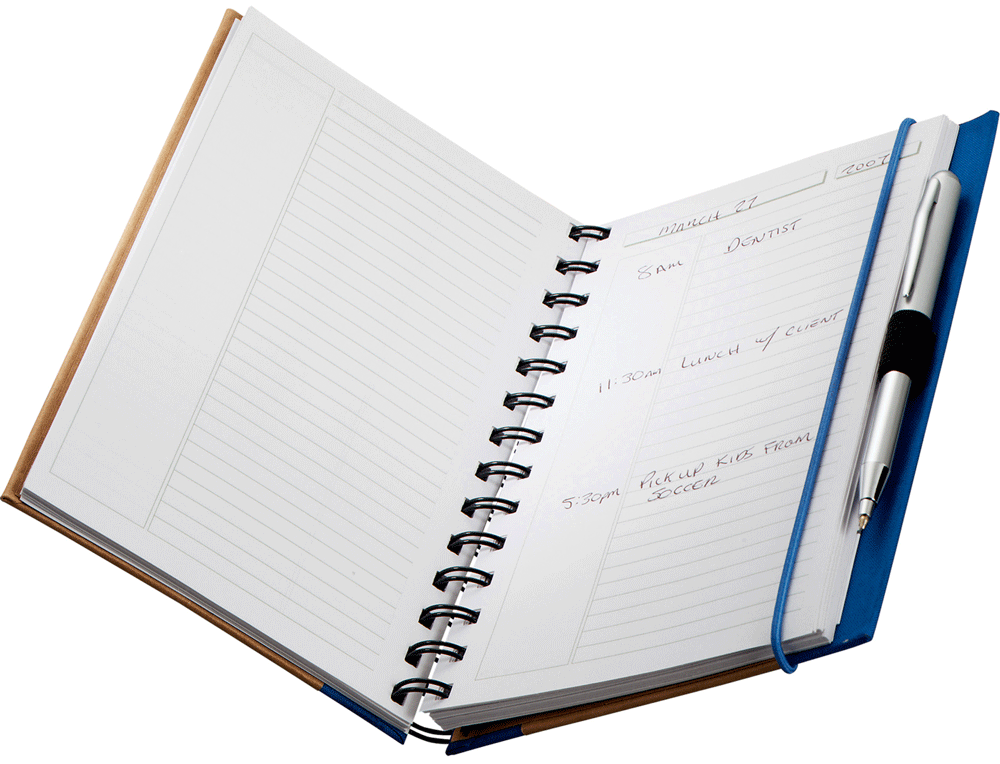 MARCH 27 2007
8AM DENTIST
11:30AM LUNCH W/ CLIENT
5:30PM PICK UP KIDS FROM
SOCCER